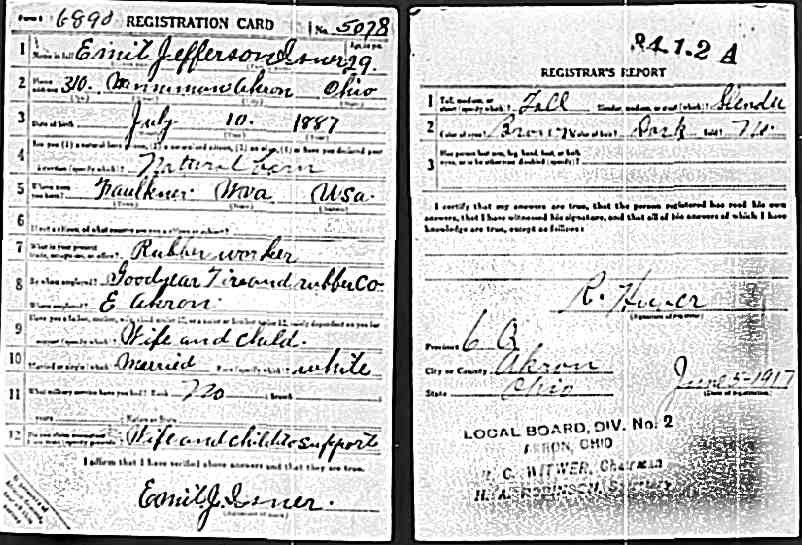 Form 1 6890 REGISTRATION CARD No. 5078
1 Name in full Emil Jefferson Isner 29
Age, in yrs.
2 310. Akron Ohio
3 Date of birth July 10. 1887
4 Are you (1) a natural born citizen, (2) a naturalized citizen, (3) an alien, (4) or have you declared your
intention (specify which)? Natural born
5 Where were you born? Faulkner. W Va USa.
6 If not a citizen, of what country are you a citizen or subject?
7 What is your present trade, occupation, or office? Rubber worker
8 By whom employed? Goodyear Tire and rubber Co
Where employed? E Akron.
9 Have you a father, mother, wife, child under 12, or a sister or brother under 12, solely dependent on you for
support (specify which)? Wife and child.
10 Married or single (which)? Married Race (specify which)? white
11 What military service have you had? Rank no ; branch
years ; Nation or State
12 Do you claim exemption from draft (specify grounds)? Wife and child to support
I affirm that I have verified above answers and that they are true.
Emil J. Isner.
(Signature or mark)
34-1-2 A
REGISTRAR'S REPORT
1 Tall, medium, or short (specify which)? Tall Slender, medium, or stout (which)? Slender
2 Color of eyes? Brown Color of hair? Dark Bald? No.
3 Has person lost arm, leg, hand, foot, or both
eyes, or is he otherwise disabled (specify)?
I certify that my answers are true, that the person registered has read his own
answers, that I have witnessed his signature, and that all of his answers of which I have
knowledge are true, except as follows:
R.
(Signature of registrar)
Precinct 6 Q
City or County Akron
State Ohio June 5-1917
(Date of registration)
LOCAL BOARD, DIV. No. 2
AKRON, OHIO
C. WITWER, Chairman
H. A. ROBINSON, Secretary